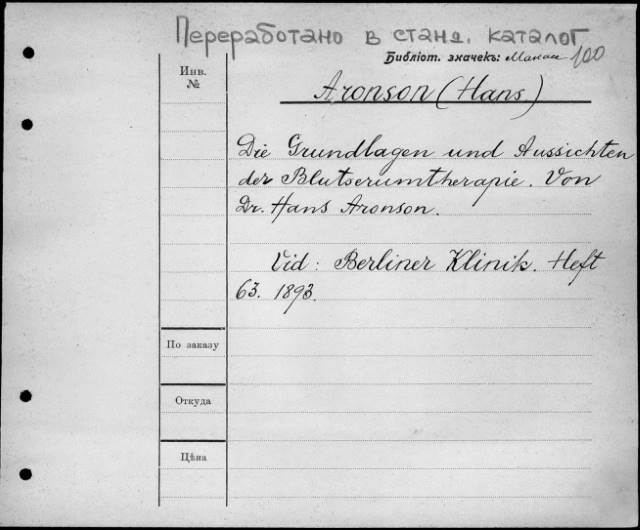 Переработано в станд. каталог
Библіот. значекъ: 100
Инв.
№
Aronson (Hans.)
Die Grundlagen und Aussichten
der Blutserumtherapie. Von
Dr. Hans Aronson.
Vid: Berliner Klinik. Heft
63. 1893.
По заказу
Откуда
Цѣна